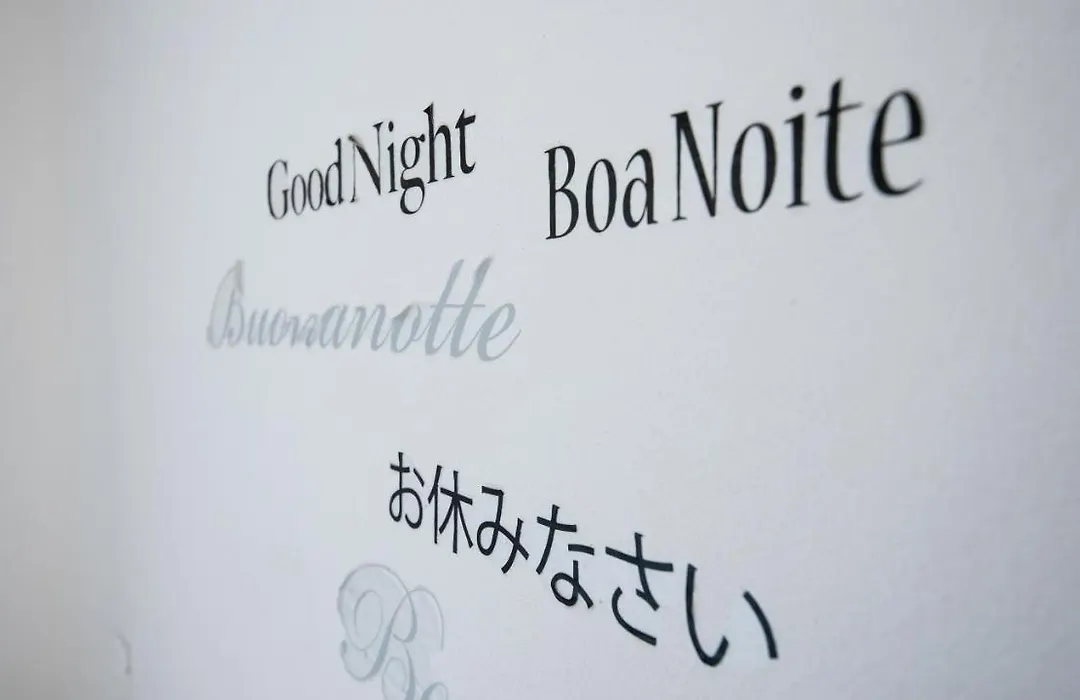 Good Night
Boa Noite
Buonanotte
お休みなさい